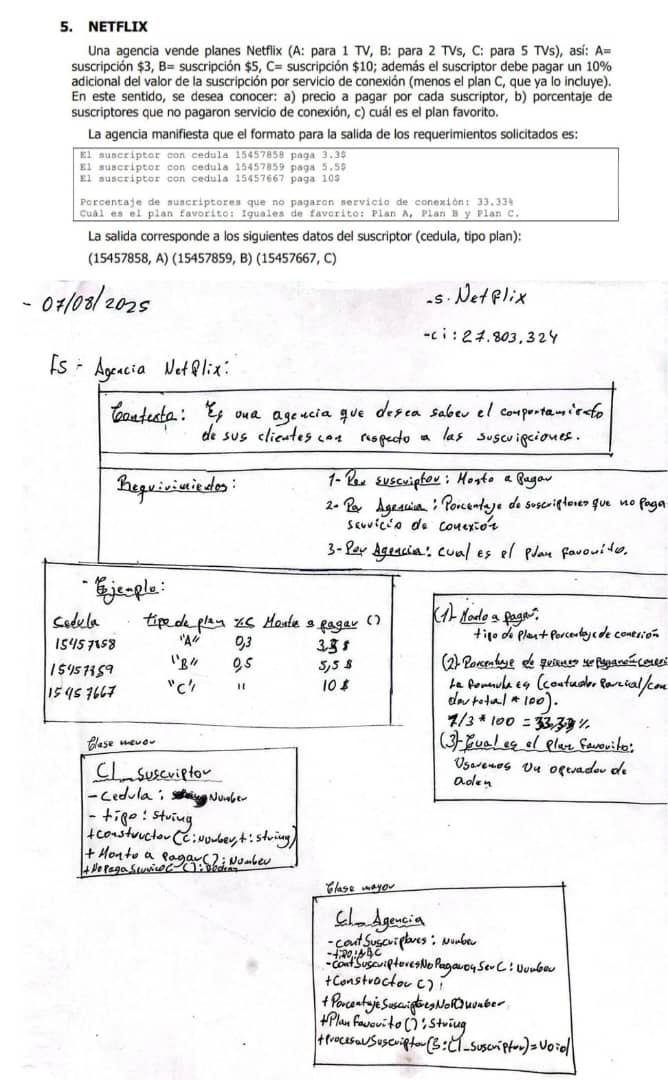 5. NETFLIX
Una agencia vende planes Netflix (A: para 1 TV, B: para 2 TVs, C: para 5 TVs), así: A=
suscripción $3, B= suscripción $5, C= suscripción $10; además el suscriptor debe pagar un 10%
adicional del valor de la suscripción por servicio de conexión (menos el plan C, que ya lo incluye).
En este sentido, se desea conocer: a) precio a pagar por cada suscriptor, b) porcentaje de
suscriptores que no pagaron servicio de conexión, c) cuál es el plan favorito.
La agencia manifiesta que el formato para la salida de los requerimientos solicitados es:
El suscriptor con cedula 15457858 paga 3.3$
El suscriptor con cedula 15457859 paga 5.5$
El suscriptor con cedula 15457667 paga 10$
Porcentaje de suscriptores que no pagaron servicio de conexión: 33.33%
Cuál es el plan favorito: Iguales de favorito: Plan A, Plan B y Plan C.
La salida corresponde a los siguientes datos del suscriptor (cedula, tipo plan):
(15457858, A) (15457859, B) (15457667, C)
- 07/08/2025
-5. Netflix
-ci: 27.803.324
ES - Agencia Netflix:
Contexto: Es una agencia que desea saber el comportamiento
de sus clientes con respecto a las suscripciones.
Requirimientos:
1- Por suscriptor: Monto a Pagar
2- Por Agencia: Porcentaje de suscriptores que no paga
servicio de conexión
3- Por Agencia: cual es el plan favorito.
- Ejemplo:
Cedula tipo de plan %C Monto a pagar ()
15457858 "A" 0,3 3.3 $
15457859 "B" 0,5 5,5 $
15457667 "C" " 10 $
(1)- Monto a pagar:
tipo de plan + Porcentaje de conexión
(2)- Porcentaje de quienes no pagaron conexi
La formula es (contador Parcial/con
dor total * 100).
1/3 * 100 = 33,33 %
(3)- Cual es el plan favorito:
Usaremos un operador de
Clase menor
Cl_Suscriptor
- Cedula: Number
- tipo: String
+ constructor (c: number, t: string)
+ Monto a pagar(): Number
+ NoPagaServicioC ():
Clase mayor
Cl_Agencia
- contSuscriptores: Number
- contSuscriptoresNoPagaronServC: Number
+ Constructor ()
+ PorcentajeSuscriptoresNoP() number
+ Plan favorito (): String
+ procesarSuscriptor(S: Cl_Suscriptor) = Void